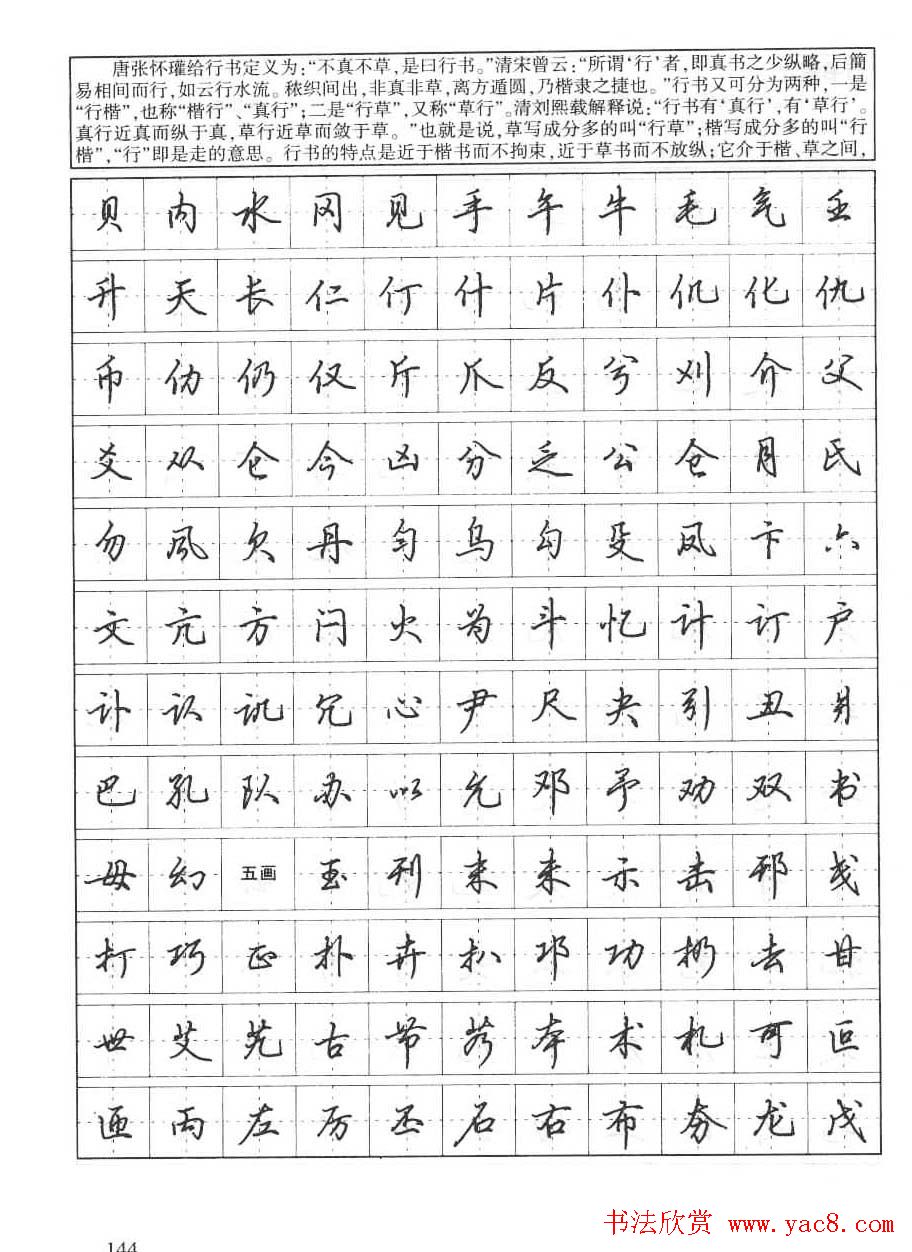 唐张怀瓘给行书定义为:“不真不草,是曰行书。”清宋曾云:“所谓‘行’者,即真书之少纵略,后簡
易相间而行,如云行水流。秾织间出,非真非草,离方遁圆,乃楷隶之捷也。”行书又可分为两种,一是
“行楷”,也称“楷行”、“真行”;二是“行草”,又称“草行”。清刘熙载解释说:“行书有‘真行’,有‘草行’。
真行近真而纵于真,草行近草而敛于草。”也就是说,草写成分多的叫“行草”;楷写成分多的叫“行
楷”,“行”即是走的意思。行书的特点是近于楷书而不拘束,近于草书而不放纵;它介于楷、草之间,
贝 内 水 冈 见 手 午 牛 毛 气 壬
升 夭 长 仁 仃 什 片 仆 仉 化 仇
币 仂 仍 仅 斤 爪 反 兮 刈 介 父
爻 从 仑 今 凶 分 乏 公 仓 月 氏
勿 風 欠 丹 匀 乌 勾 殳 凤 卞 六
文 亢 方 闩 火 为 斗 忆 计 订 户
讣 认 讥 冗 心 尹 尺 夬 引 丑 爿
巴 孔 队 办 以 允 邓 予 劝 双 书
毋 幻 五画 玉 刊 未 末 示 击 邗 戋
打 巧 正 扑 卉 扒 邛 功 扔 去 甘
世 艾 艽 古 节 艿 本 术 札 可 叵
匝 丙 左 厉 丕 石 右 布 夯 龙 戊
书法欣赏 www.yac8.com
144